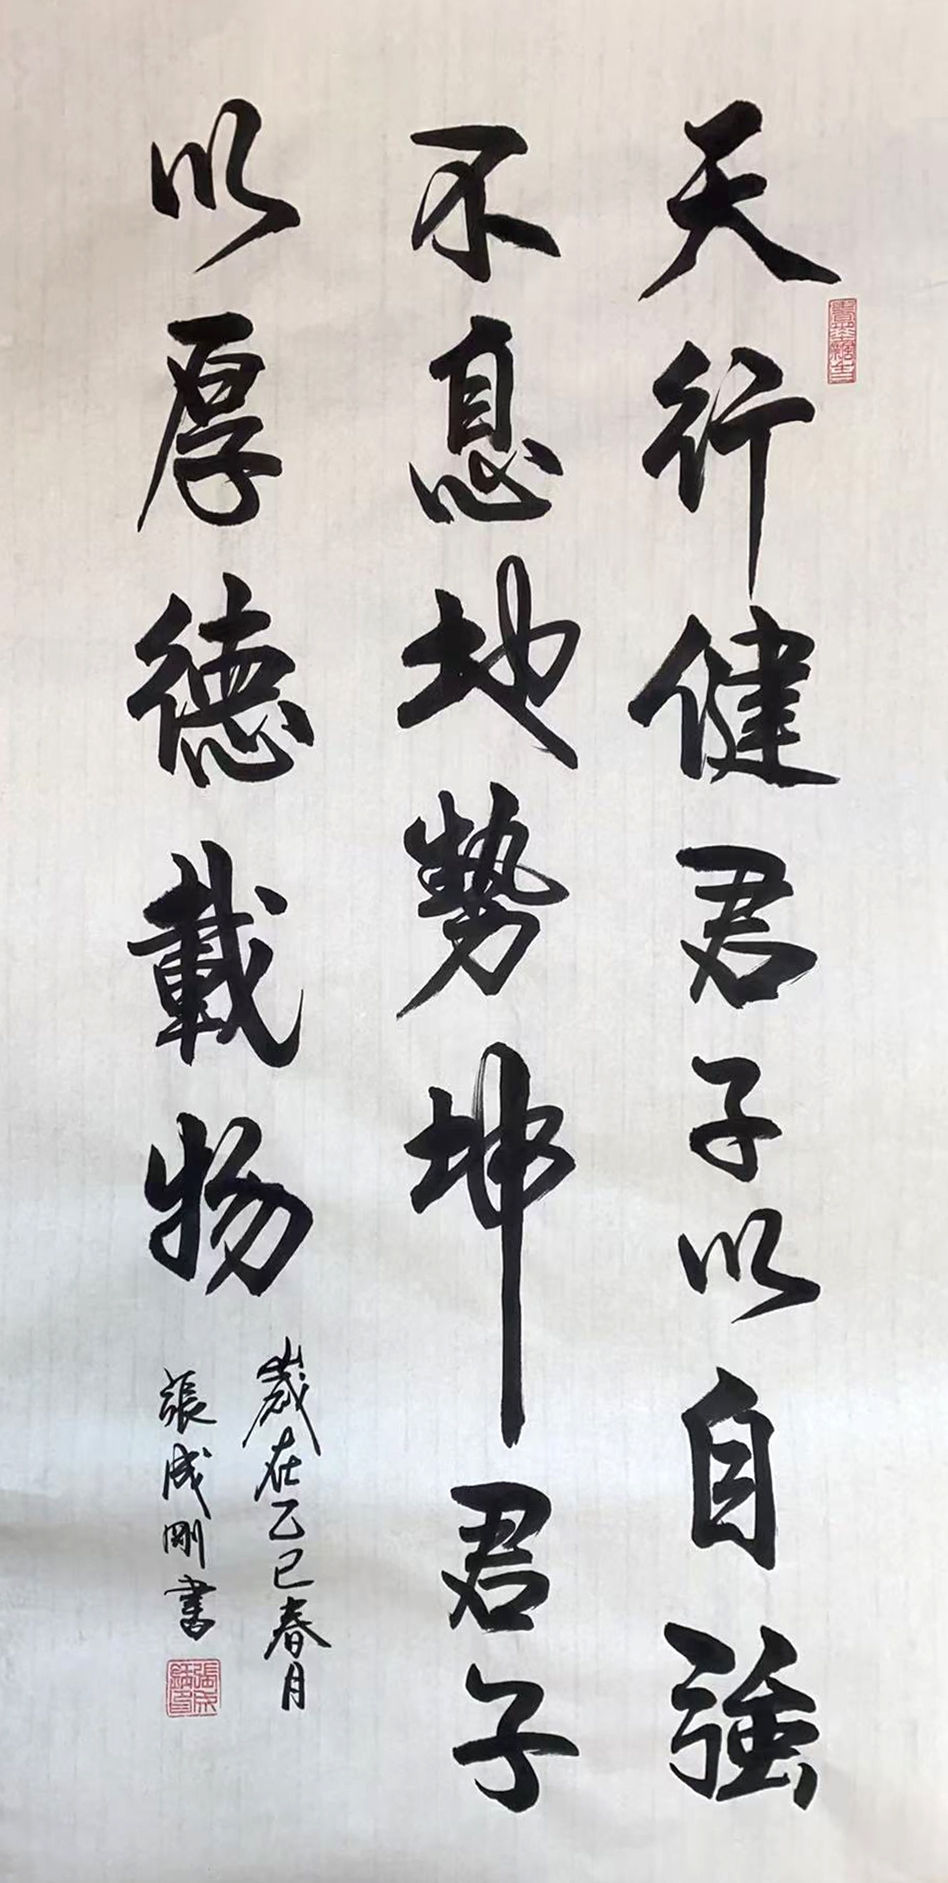 天行健君子以自強
不息地勢坤君子
以厚德載物
歲在乙巳春月
張成剛書